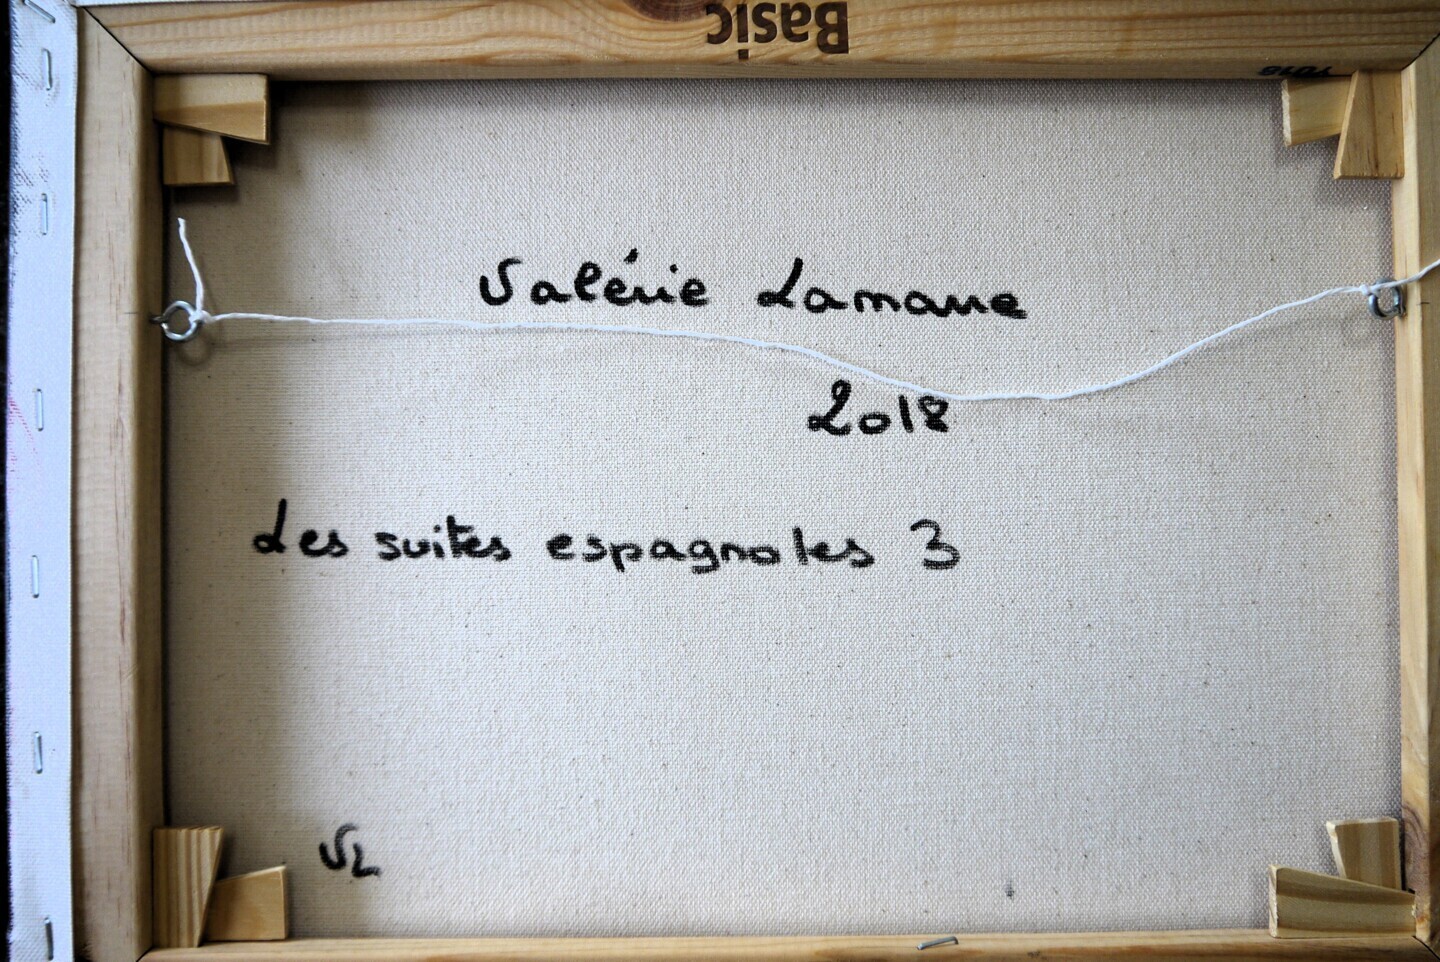 Basic
Valérie Lamarre
2018
Les suites espagnoles 3
VL